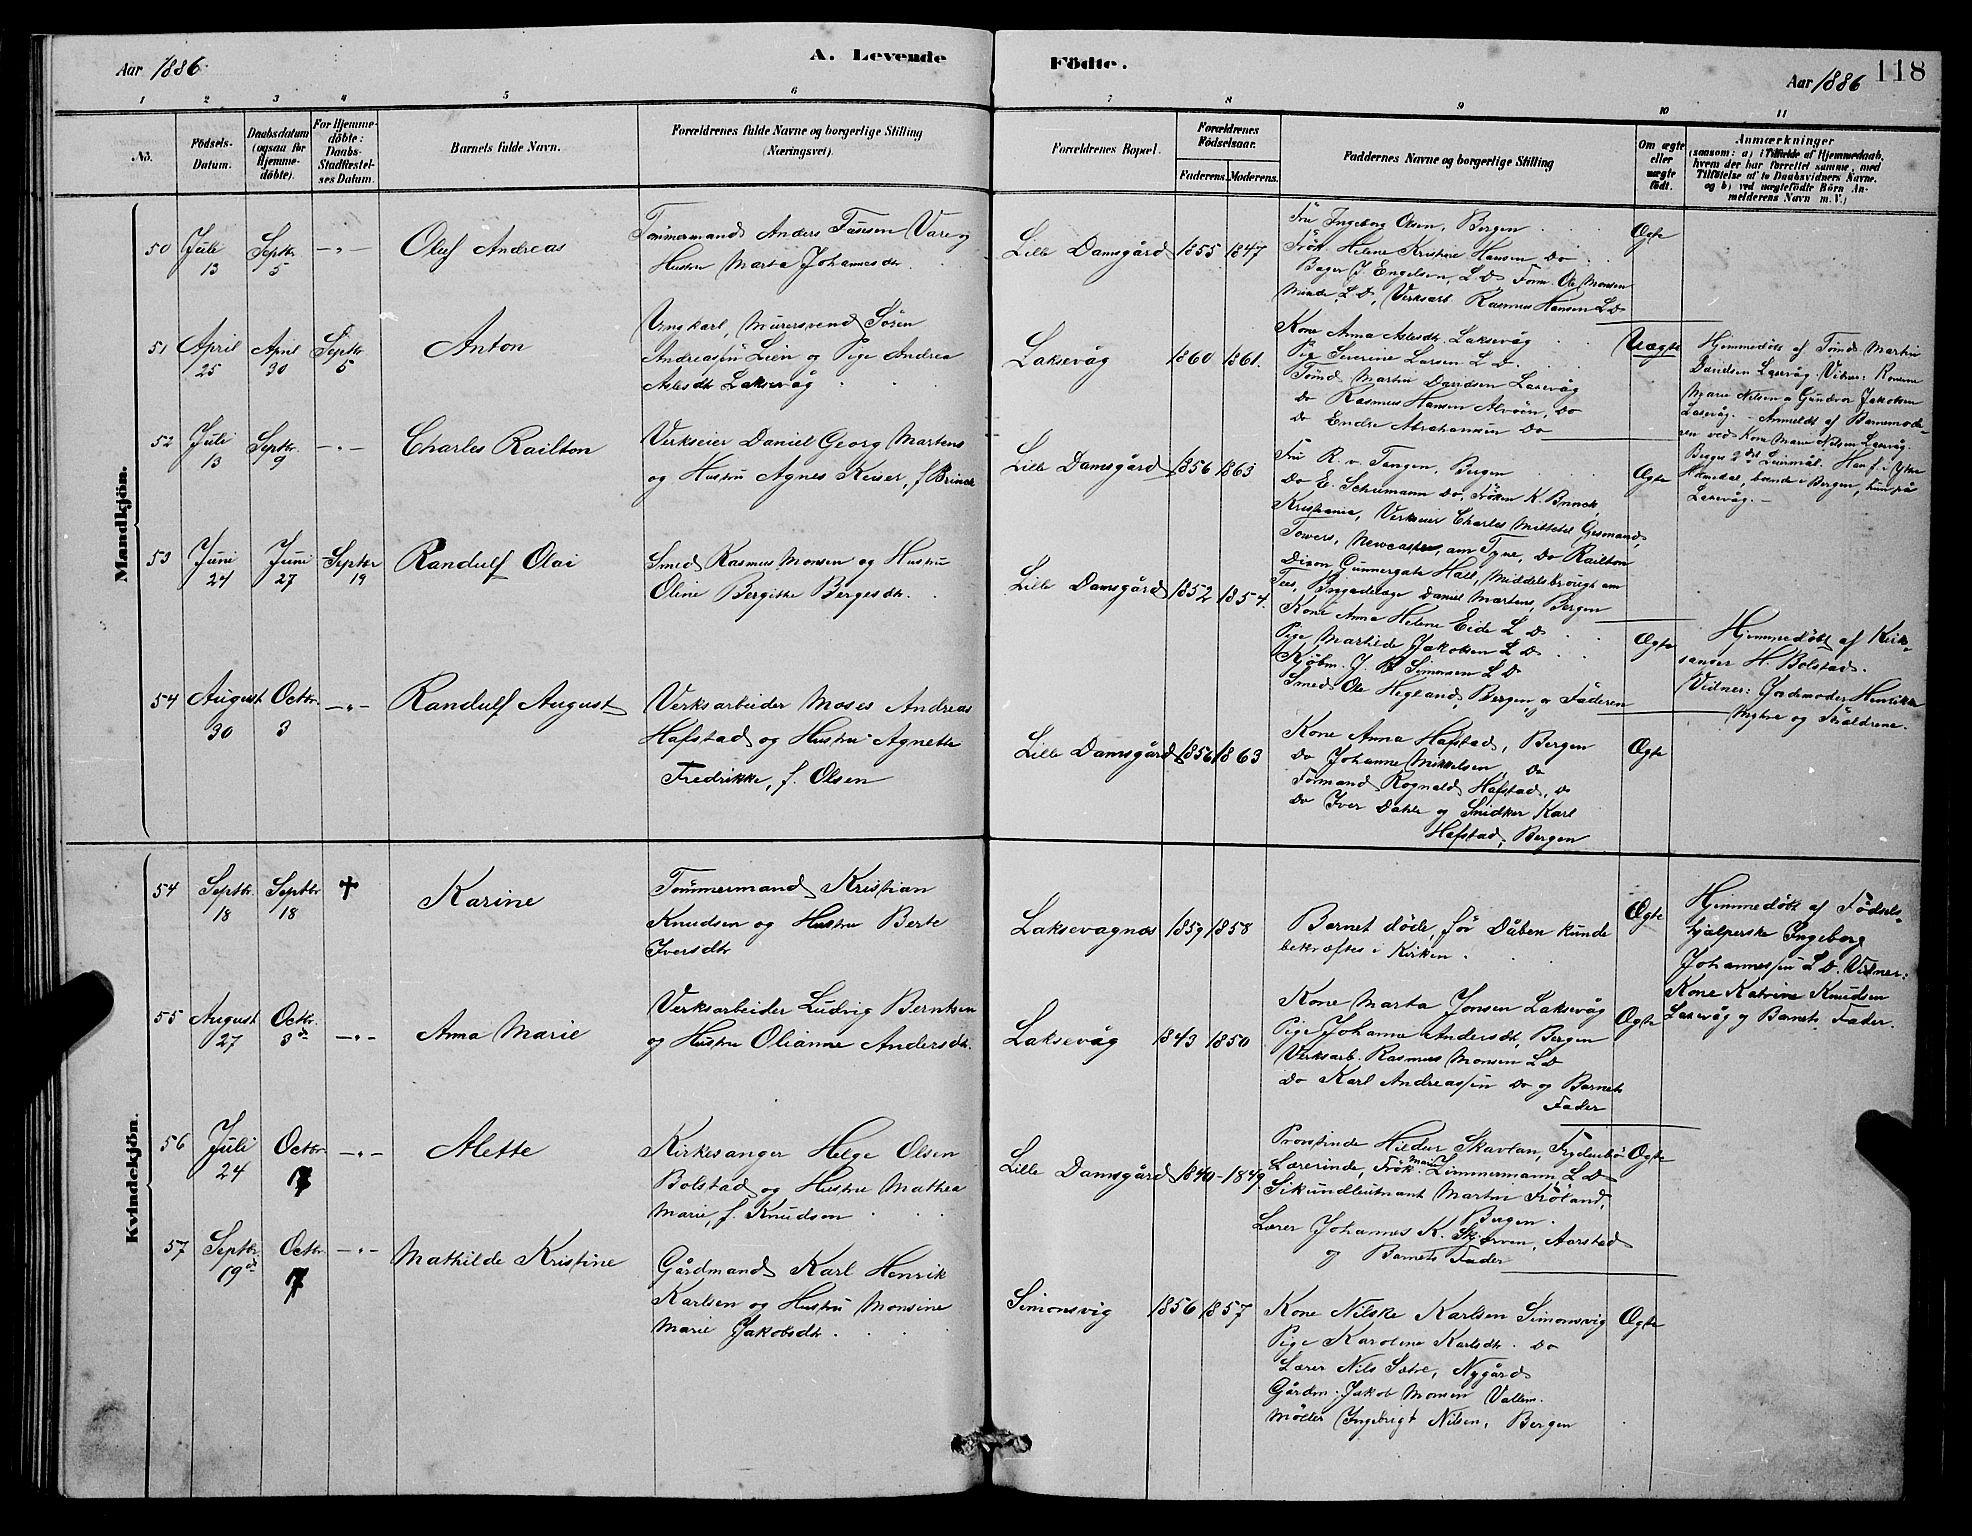 Aar 1886.
A. Levende
Födte.
Aar 1886
118
1 2 3 4 5 6 7 8 9 10 11
No.
Födsels-
Datum.
Daabsdatum
(ogsaa for
Hjemme-
döbte).
For Hjemme-
döbte:
Daabs-
Stadfæstel-
ses Datum.
Barnets fulde Navn.
Forældrenes fulde Navne og borgerlige Stilling
(Næringsvei).
Forældrenes Bopæl.
Forældrenes
Födselsaar.
Faderens. Moderens.
Faddernes Navne og borgerlige Stilling
Om ægte
eller
uægte
födt.
Anmærkninger
(saasom: a) i Tilfælde af Hjemmedaab,
hvem der har forrettet samme, med
Tilföielse af to Daabsvidners Navne,
og b) ved uægtefödte Börn An-
melderens Navn m. V.)
Mandkjön.
50 Juli 13 Septbr 5 -"- Olef Andreas
Tømmermand Anders Vare og
Hustru Marta Johannesdtr.
Lille Damsgård 1855 1847
Fru Ingeborg Olsen, Bergen
Frøk. Helene Kristine Hansen Do
Bager J Engelsen, L D, Form. Ole Monsen
Minde, L D, Verksarb. Rasmus Hansen L D
Ægte
51 April 25 April 30 Septbr 5 Anton
Ungkarl, Murersvend Søren
Andreassen Lien og Pige Andrea
Aslesdtr Laksevåg
Laksevåg 1860 1861.
Kone Anna Aslesdtr. Laksevåg
Pige Severine Larsen L D.
Tømd. Martin Davidsen Laxevåg
Do Rasmus Hansen Alvøen, Do
Do Endre Abrahamsen Do
Uægte
Hjemmedøbt af Tømd. Martin
Davidsen Laxevåg. Vidner: Konerne
Marie Nilsen og Gundvor Jakobsen
Laxevåg. - Anmeldt af Barnemode-
ren ved Kone Marie Nilsen Laxevåg.
Begges 2det Leiermål. Han f. i Ytre
Holmedal, boende i Bergen, hun på
Laxevåg. -
52 Juli 13 Septbr 9 -"- Charles Railton
Verkseier Daniel Georg Martens
og Hustru Agnes Keiser, f. Brinck
Lille Damsgård 1856 1863
Fru R. v. Tangen, Bergen
Do E. Schumann Do, Frøken K. Brinck,
Kristiania, Verkseier Charles Mitchel
Towers, Newcastle am Tyne, Do Railton
Dixon Gunnergate Hall, Middelsbrough am
Tees, Brigadelæge Daniel Martens, Bergen
Ægte
53 Juni 24 Juni 27 Septbr 19 Randulf Olai
Smed Rasmus Monsen og Hustru
Oline Bergitte Bergesdtr.
Lille Damsgård 1852 1854.
Kone Anna Helene Eide L D
Pige Martilde Jakobsen L D
Kjøbm. J. B. Simonsen L D
Smed Ole Hegland, Bergen, og Faderen
Ægte
Hjemmedøbt af Kirk-
sanger H. Bolstad.
Vidner: Jordemoder Henrikke
Myhre og Forældrene
54 August 30 Octbr. 3 -"- Randulf August
Verksarbeider Moses Andreas
Hafstad og Hustru Agnette
Fredrikke, f. Olsen
Lille Damsgård 1856 1863
Kone Anna Hafstad, Bergen
Do Johanne Mikkelsen, Do
Formand Rognald Hafstad, Do
Do Iver Dahle og Snidker Karl
Hafstad, Bergen
Ægte
Kvindekjön.
54 Septbr. 18 Septbr 18 ✝ Karine
Tømmermand Kristian
Knudsen og Hustru Berte
Iversdtr
Laksevagnæs 1859 1858
Barnet døde før Dåben kunde
bekræftes i Kirken.
Ægte
Hjemmedøbt af Fødsels-
hjælperske Ingeborg
Johannessen L D. Vidner:
Kone Katrine Knudsen
Laxevåg og Barnets Fader.
55 August 27 Octbr. 3 -"- Anna Marie
Verksarbeider Ludvig Berntsen
og Hustru Olianne Andersdtr.
Laksevåg 1843 1850
Kone Marta Jonsen Laksevåg
Pige Johanna Andersdtr, Bergen
Verksarb. Rasmus Monsen L D
Do Karl Andreassen Do og Barnets
Fader
Ægte
56 Juli 24 Octbr 17 -"- Alette
Kirkesanger Helge Olsen
Bolstad og Hustru Mathea
Marie, f. Knudsen
Lille Damsgård 1840 - 1849
Provstinde Hildur Skavlan,
Lærerinde, Frøk. Marie Zimmermann L D
Sekundlieutnant Martin Frøland,
Bergen.
Lærer Johannes K. Skjerven, Aarstad
og Barnets Fader
Ægte
57 Septbr. 19 Octbr 17 -"- Mathilde Kristine
Gårdmand Karl Henrik
Karlsen og Hustru Monsine
Marie Jakobsdtr.
Simonsvig 1856 1857
Kone Nilske Karlsen Simonsvig
Pige Karoline Karlsdtr. Do
Lærer Nils Sætre, Nygård
Gårdm. Jakob Monsen Vallem.
Møller Ingebrigt Nilsen, Bergen
Ægte